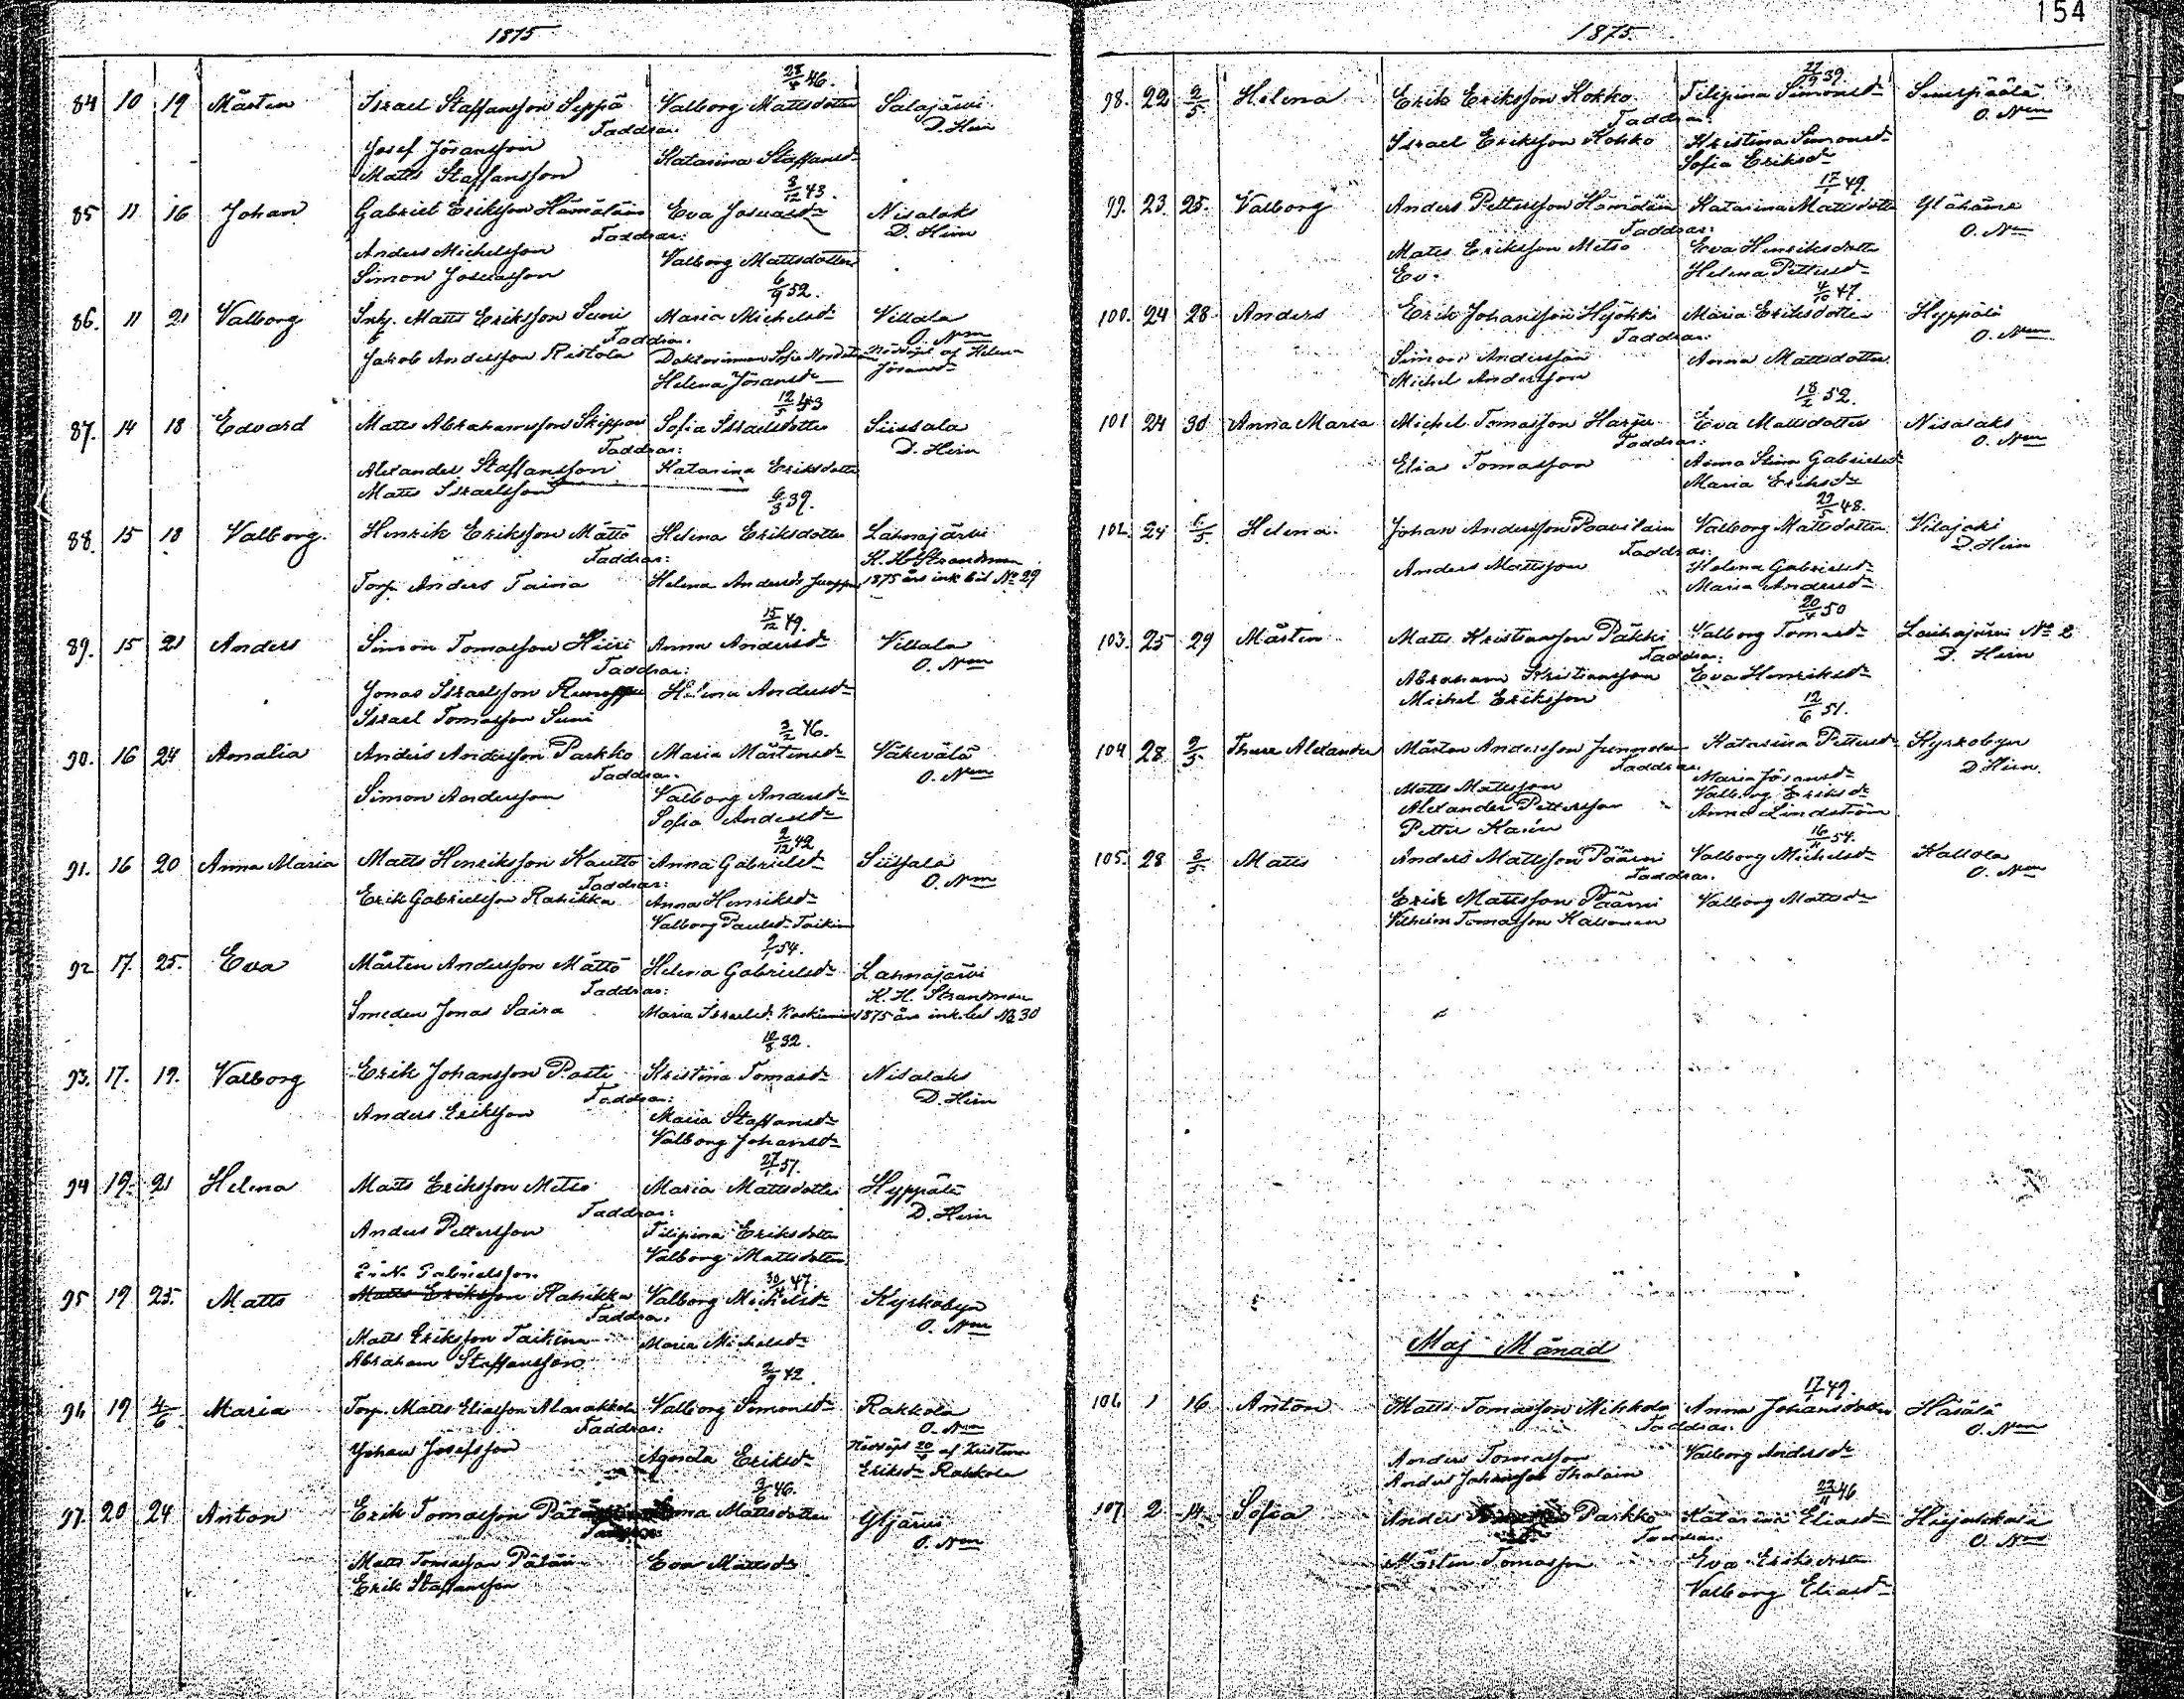 154
1875
28/4 46.
84 10 19 Mårten Israel Staffansson Seppä Valborg Mattsdotter Salajärvi
Faddrar: D. Hirn
Josef Jöransson Katarina Staffansdr
Matts Staffansson
3/12 43.
85 11 16 Johan Gabriel Eriksson Hämäläin Eva Josuasdr Nisalaks
Faddrar: D. Hirn
Anders Michelsson Valborg Mattsdotter
Simon Josuasson
6/9 52.
86. 11 21 Valborg Inh. Matts Eriksson Suni Maria Michelsdr Villala
Faddrar: O. Nm
Jakob Andersson Ristola Doktorinnan Sofia Nödöpt af Helena
Helena Jöransdr Jöransdr
12/5 43
87. 14 18 Edvard Matts Abrahamsson Skippari Sofia Israelsdotter Siissala
Faddrar: D. Hirn
Alexander Staffansson Katarina Eriksdotter
Matts Israelsson
6/3 39.
88. 15 18 Valborg. Henrik Eriksson Mättö Helena Eriksdotter Lahnajärvi
Faddrar: K. H. Strandman
Torp. Anders Taina Helena Andersdr 1875 års ink. bil. No 29
15/12 49.
89. 15 21 Anders Simon Tomasson Hiiri Anna Andersdr Villala
Faddrar: O. Nm
Jonas Israelsson Helena Andersdr
Israel Tomasson Suni
3/2 46.
90. 16 24 Amalia Anders Andersson Parkko Maria Mårtensdr Väkevälä
Faddrar: O. Nm
Simon Andersson Valborg Andersdr
Sofia Andersdr
2/12 42
91. 16 20 Anna Maria Matts Henriksson Kautto Anna Gabrielsdr Siissala
Faddrar: O. Nm
Erik Gabrielsson Rahikka Anna Henriksdr
Valborg Paulsdr Taikina
9/1 54.
92 17. 25. Eva Mårten Andersson Mättö Helena Gabrielsdr Lahnajärvi
Faddrar: K. H. Strandman
Smeden Jonas Saira Maria Israelsdr 1875 års ink. bil. No 30
10/8 32.
93. 17. 19. Valborg Erik Johansson Pasti Kristina Tomasdr Nisalaks
Faddrar: D. Hirn
Anders Eriksson Maria Staffansdr
Valborg Johansdr
27/1 51.
94 19. 21 Helena Matts Eriksson Metso Maria Mattsdotter Hyppälä
Faddrar: D. Hirn
Anders Pettersson Filipina Eriksdotter
Valborg Mattsdotter
Erik Gabrielsson 30/4 47.
95 19 25. Matts Matts Eriksson Rahikka Valborg Michelsdr Kyrkobyn
Faddrar: O. Nm
Matts Eriksson Taikina Maria Michelsdr
Abraham Staffansson
2/9 42
96 19 4/6 Maria Torp. Matts Eliasson Alarakkola Valborg Simonsdr Rakkola
Faddrar: O. Nm
Johan Josefsson Agneta Eriksdr Nödöpt 20/4 af Kristina
Eriksdr Rakkola
3/6 46.
97. 20 24 Anton Erik Tomasson Mattsdotter Yljärvi
O. Nm
Matts Tomasson Pätäri Eva Mattsdr
Erik Staffansson
1875.
27/9 39.
98. 22 2/5 Helena Erik Eriksson Kokko Filipina Simonsdr Suurpäälä
Faddrar: O. Nm
Israel Eriksson Kokko Kristina Simonsdr
Sofia Eriksdr
17/1 49.
99. 23. 25. Valborg Anders Pettersson Hämäläin Katarina Mattsdotter Ylähäme
Faddrar: O. Nm
Matts Eriksson Metso Eva Henriksdotter
Ev. Helena Pettersdr
4/10 47.
100. 24 28 Anders Erik Johansson Hyökki Maria Eriksdotter Hyppälä
Faddrar: O. Nm
Simon Andersson Anna Mattsdotter
Michel Andersson
18/2 52.
101 24 30 Anna Maria Michel Tomasson Harju Eva Mattsdotter Nisalaks
Faddrar: O. Nm
Elias Tomasson Anna Stina Gabrielsdr
Maria Eriksdr
29/5 48.
102. 24 6/5 Helena. Johan Andersson Paavilain Valborg Mattsdotter Vilajoki
Faddrar: D. Hirn
Anders Mattsson Helena Gabrielsdr
Maria Andersdr
20/4 50
103. 25 29 Mårten Matts Kristiansson Päkki Valborg Tomasdr Laihajärvi No 2
Faddrar: D. Hirn
Abraham Kristiansson Eva Henriksdr
Michel Eriksson
12/6 51.
104 28. 2/5 Thure Alexander Mårten Andersson Junnola Katarina Pettersdr Kyrkobyn
Faddrar: D. Hirn.
Matts Mattsson Maria Jöransdr
Alexander Pettersson Valborg Eriksdr
Petter Karin Anna Lindström
16/11 54.
105. 28 3/5 Matts Anders Mattsson Päärni Valborg Michelsdr Kallola
Faddrar. O. Nm
Erik Mattsson Päärni Valborg Matsdr
Vilhelm Tomasson Halsonen
Maj Månad
17/1 49.
106 1 16 Anton Matts Tomasson Nikkola Anna Johansdotter Häsälä
Faddrar: O. Nm
Anders Tomasson Valborg Andersdr
Anders Johansson Ihalain
23/11 46
107. 2 14 Sofia Anders Parkko Katarina Eliasdr Hirjalakala
Faddrar: O. Nm
Mårten Tomasson Eva Eriksdotter
Valborg Eliasdr